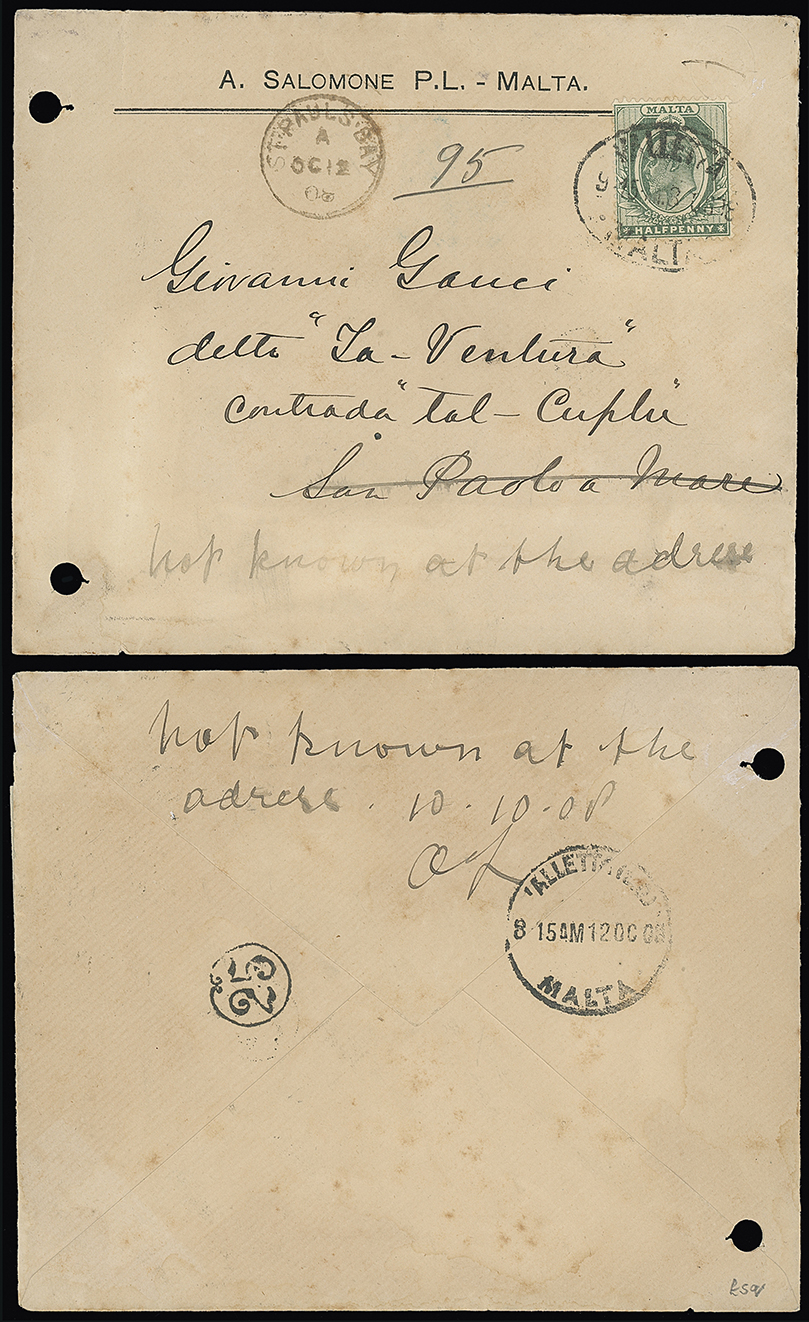 A. SALOMONE P.L. - MALTA.
ST PAUL'S BAY
A
OC 12
08
95
MALTA
HALFPENNY
VALLETTA
MALTA
Giovanni Gauci
detto "La-Ventura"
contrada "tal-Cuplu"
San Paolo a Mare
not known at the adrese
not known at the
adrese. 10.10.08
VALLETTA
8 15AM 12 OC 08
MALTA